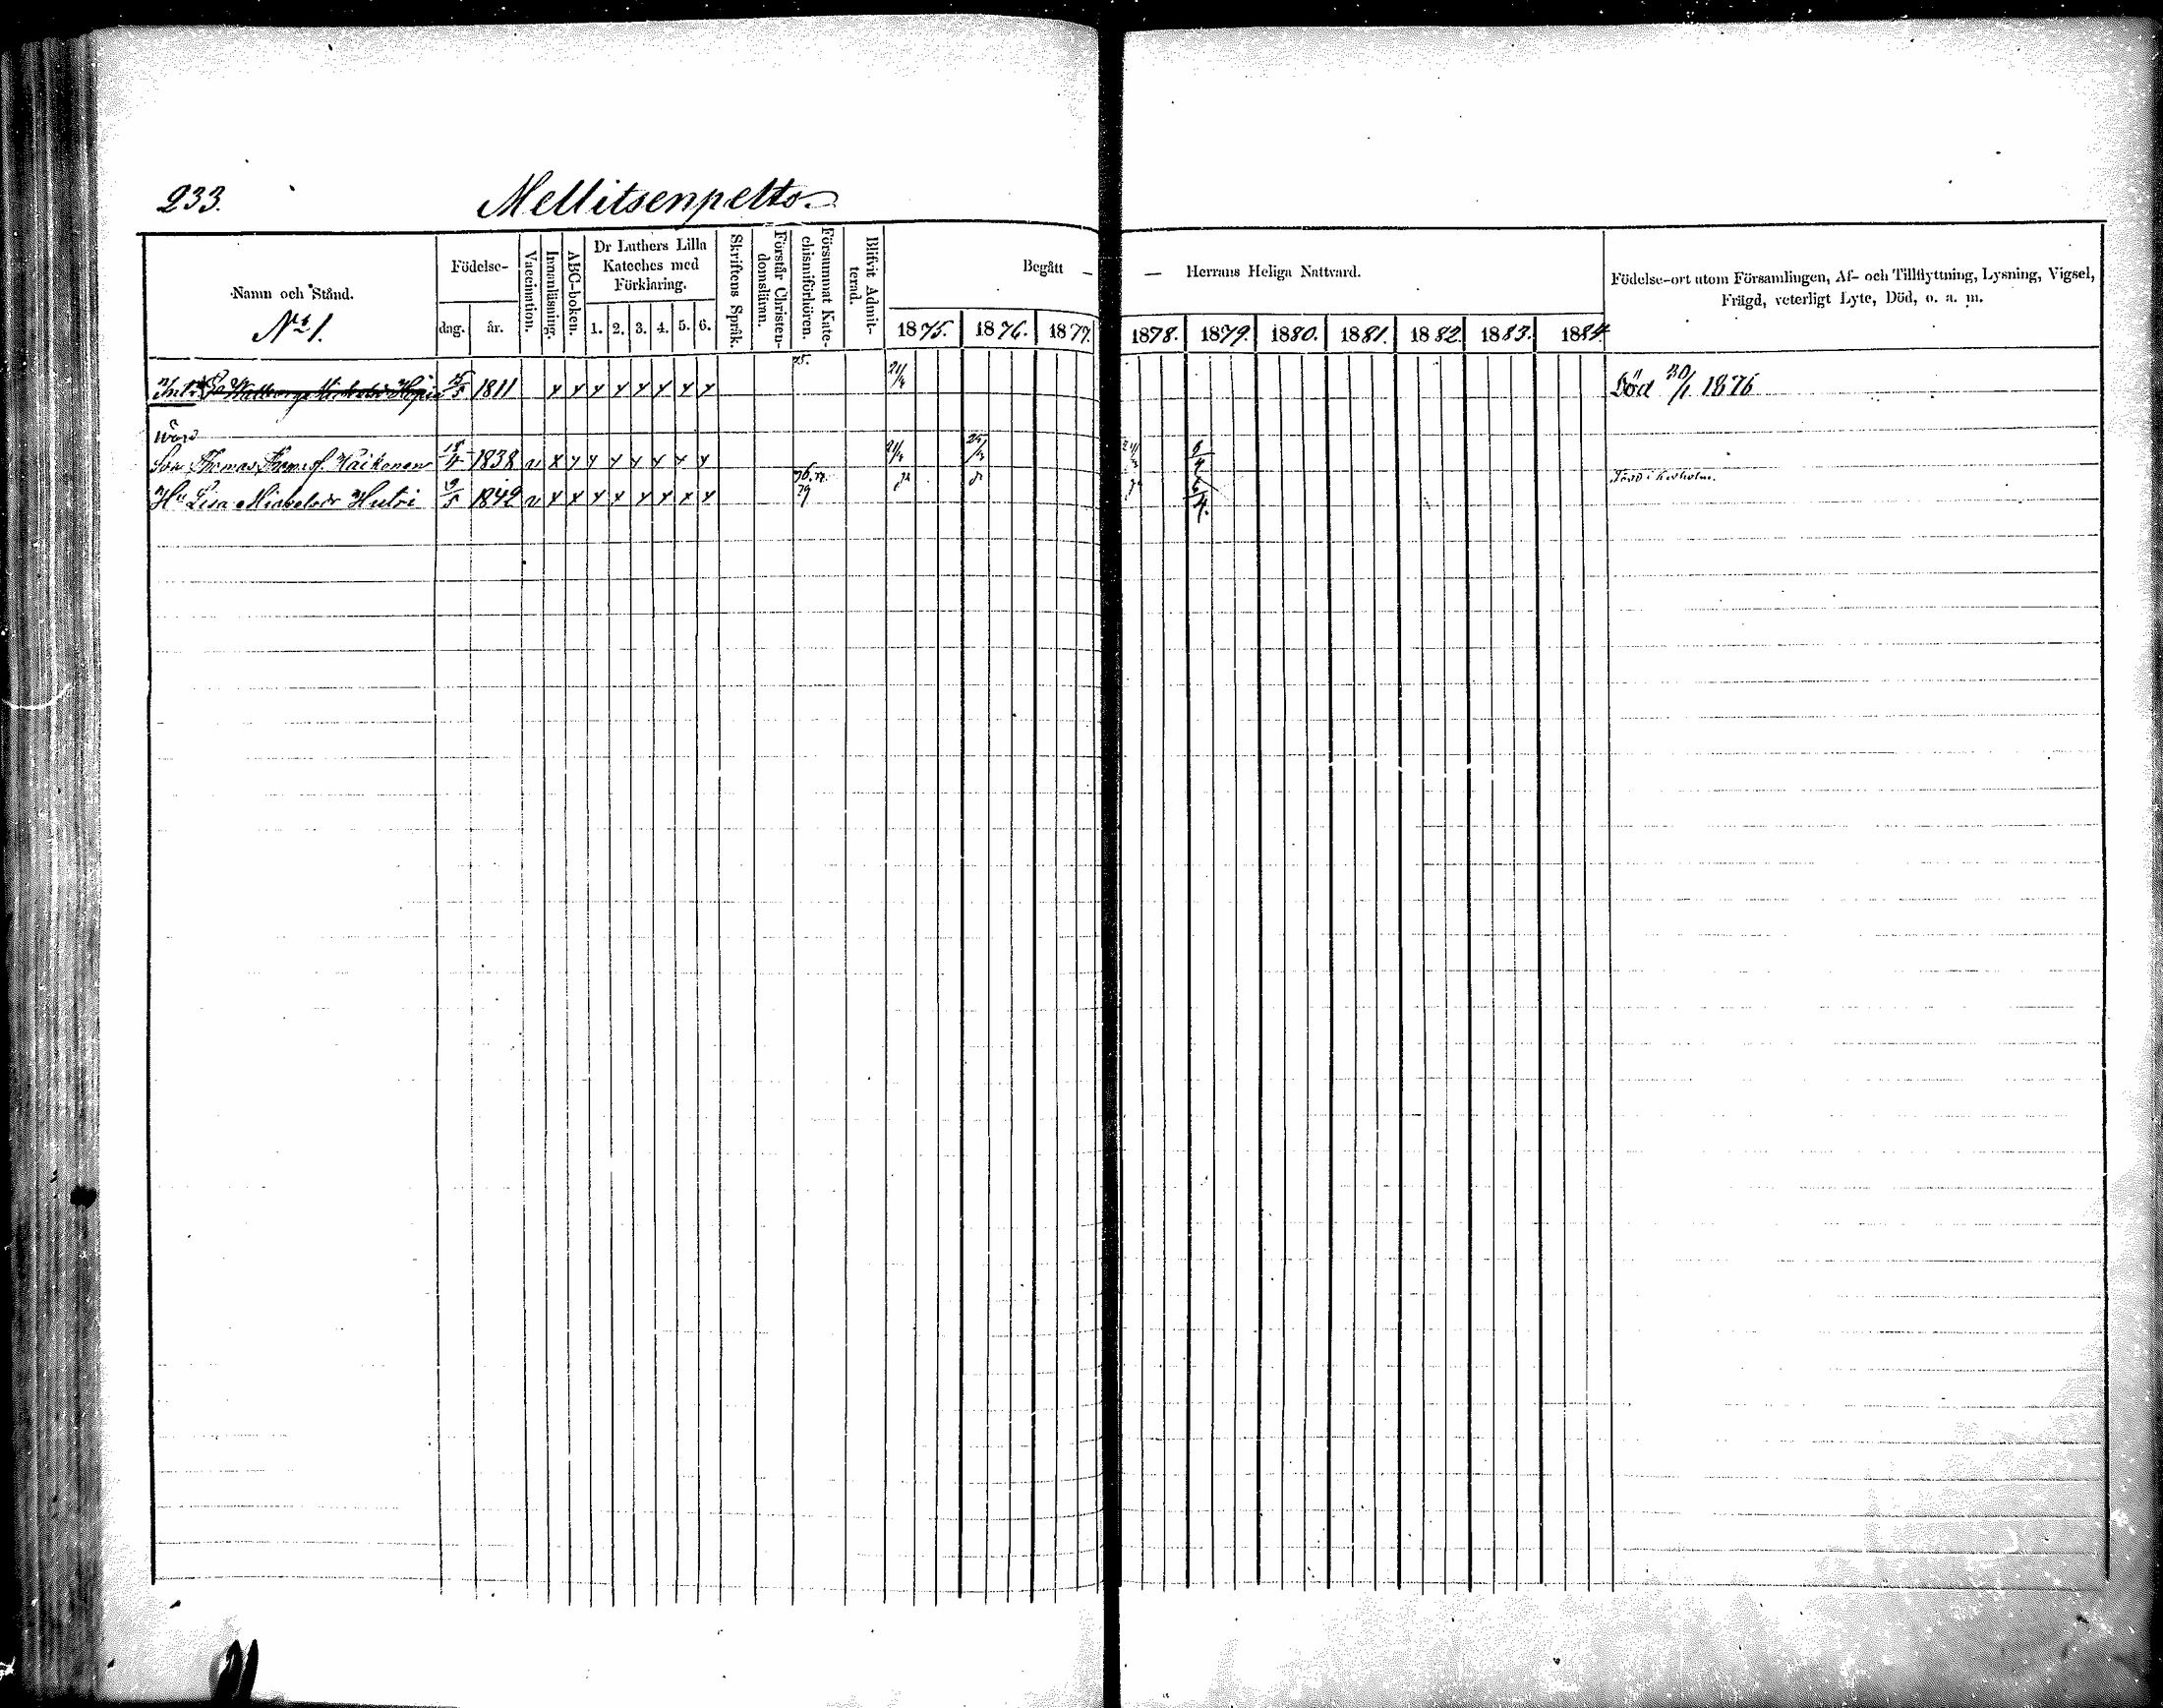 233.
Mellitsenpelto
Namn och Stånd.
No 1.
Födelse-
dag.
år.
Vaccination.
Innanläsning.
ABC-boken.
Dr Luthers Lilla
Kateches med
Förklaring.
1. 2. 3. 4. 5. 6.
Skriftens Språk.
Förstår Christen-
domsläran.
Försummat Kate-
chismiförhören.
Blifvit Admit-
terad.
Begått — — Herrans Heliga Nattvard.
1875. 1876. 1877. 1878. 1879. 1880. 1881. 1882. 1883. 1884.
Födelse-ort utom Församlingen, Af- och Tillflyttning, Lysning, Vigsel,
Frägd, veterligt Lyte, Död, o. a. m.
75.
1811 x x x x x x x x Död 30/1 1876
Son Thomas Thomsf. Häikönen 1838 v x x x x x x x x
Hu Lisa Michelsdr Hutri 19/5 1842 v x x x x x x x x 79